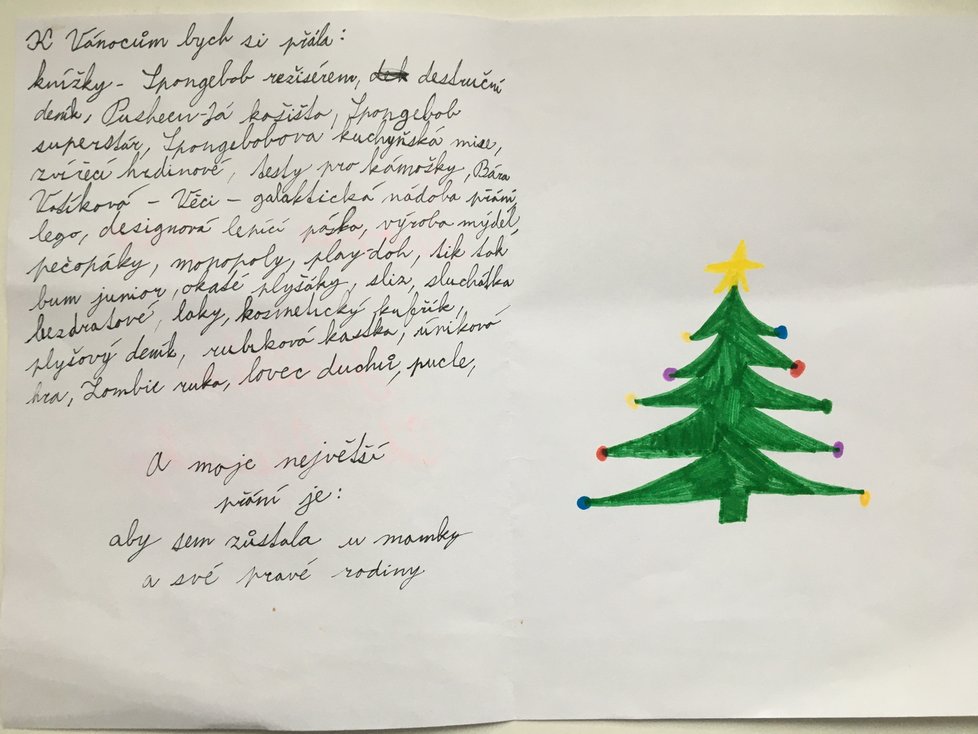 K Vánocům bych si přála:
knížky - Spongebob režisérem, destrukční
deník, Pusheen-Já košišta, Spongebob
superstár, Spongebobova kuchyňská mise,
zvířecí hrdinové, testy pro kámošky, Bára
Votíková - Věci - galaktická nádoba přání,
lego, designová lepící páska, výroba mýdel,
pečopáky, monopoly, play-doh, tik tak
bum junior, okaté plyšáky, sliz, sluchátka
bezdratové, laky, kosmetický kufřík,
plyšový deník, rubiková kostka, úniková
hra, Zombie ruka, lovec duchů, pucle,
A moje největší
přání je:
aby sem zůstala u mamky
a své pravé rodiny